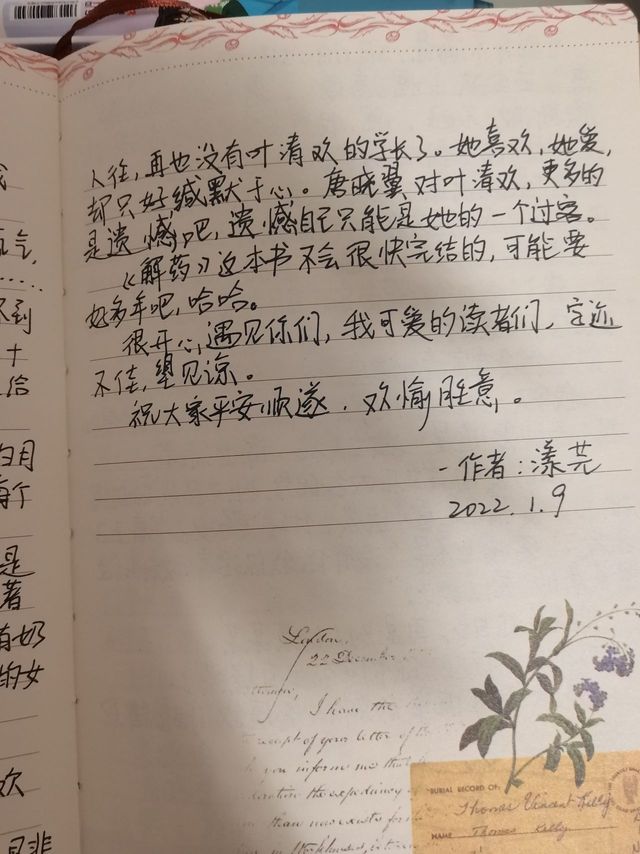 人往，再也没有叶清欢的学长了。她喜欢，她爱，
却只好缄默于心。唐晓翼对叶清欢，更多的
是遗憾吧，遗憾自己只能是她的一个过客。
《解药》这本书不会很快完结的，可能要
好多年吧，哈哈。
很开心遇见你们，我可爱的读者们，字迹
不佳，望见谅。
祝大家平安顺遂，欢愉胜意。
-作者：漾芫
2022.1.9
气，
……
不到
十
给
白月
每个
是
著
有奶
的女
欢
是非
London,
22 December
I have the
receipt of your letter of the
you inform me that
the expediency of
than
BURIAL RECORD OF:
Thomas Vincent Kelly
NAME Thomas Kelly